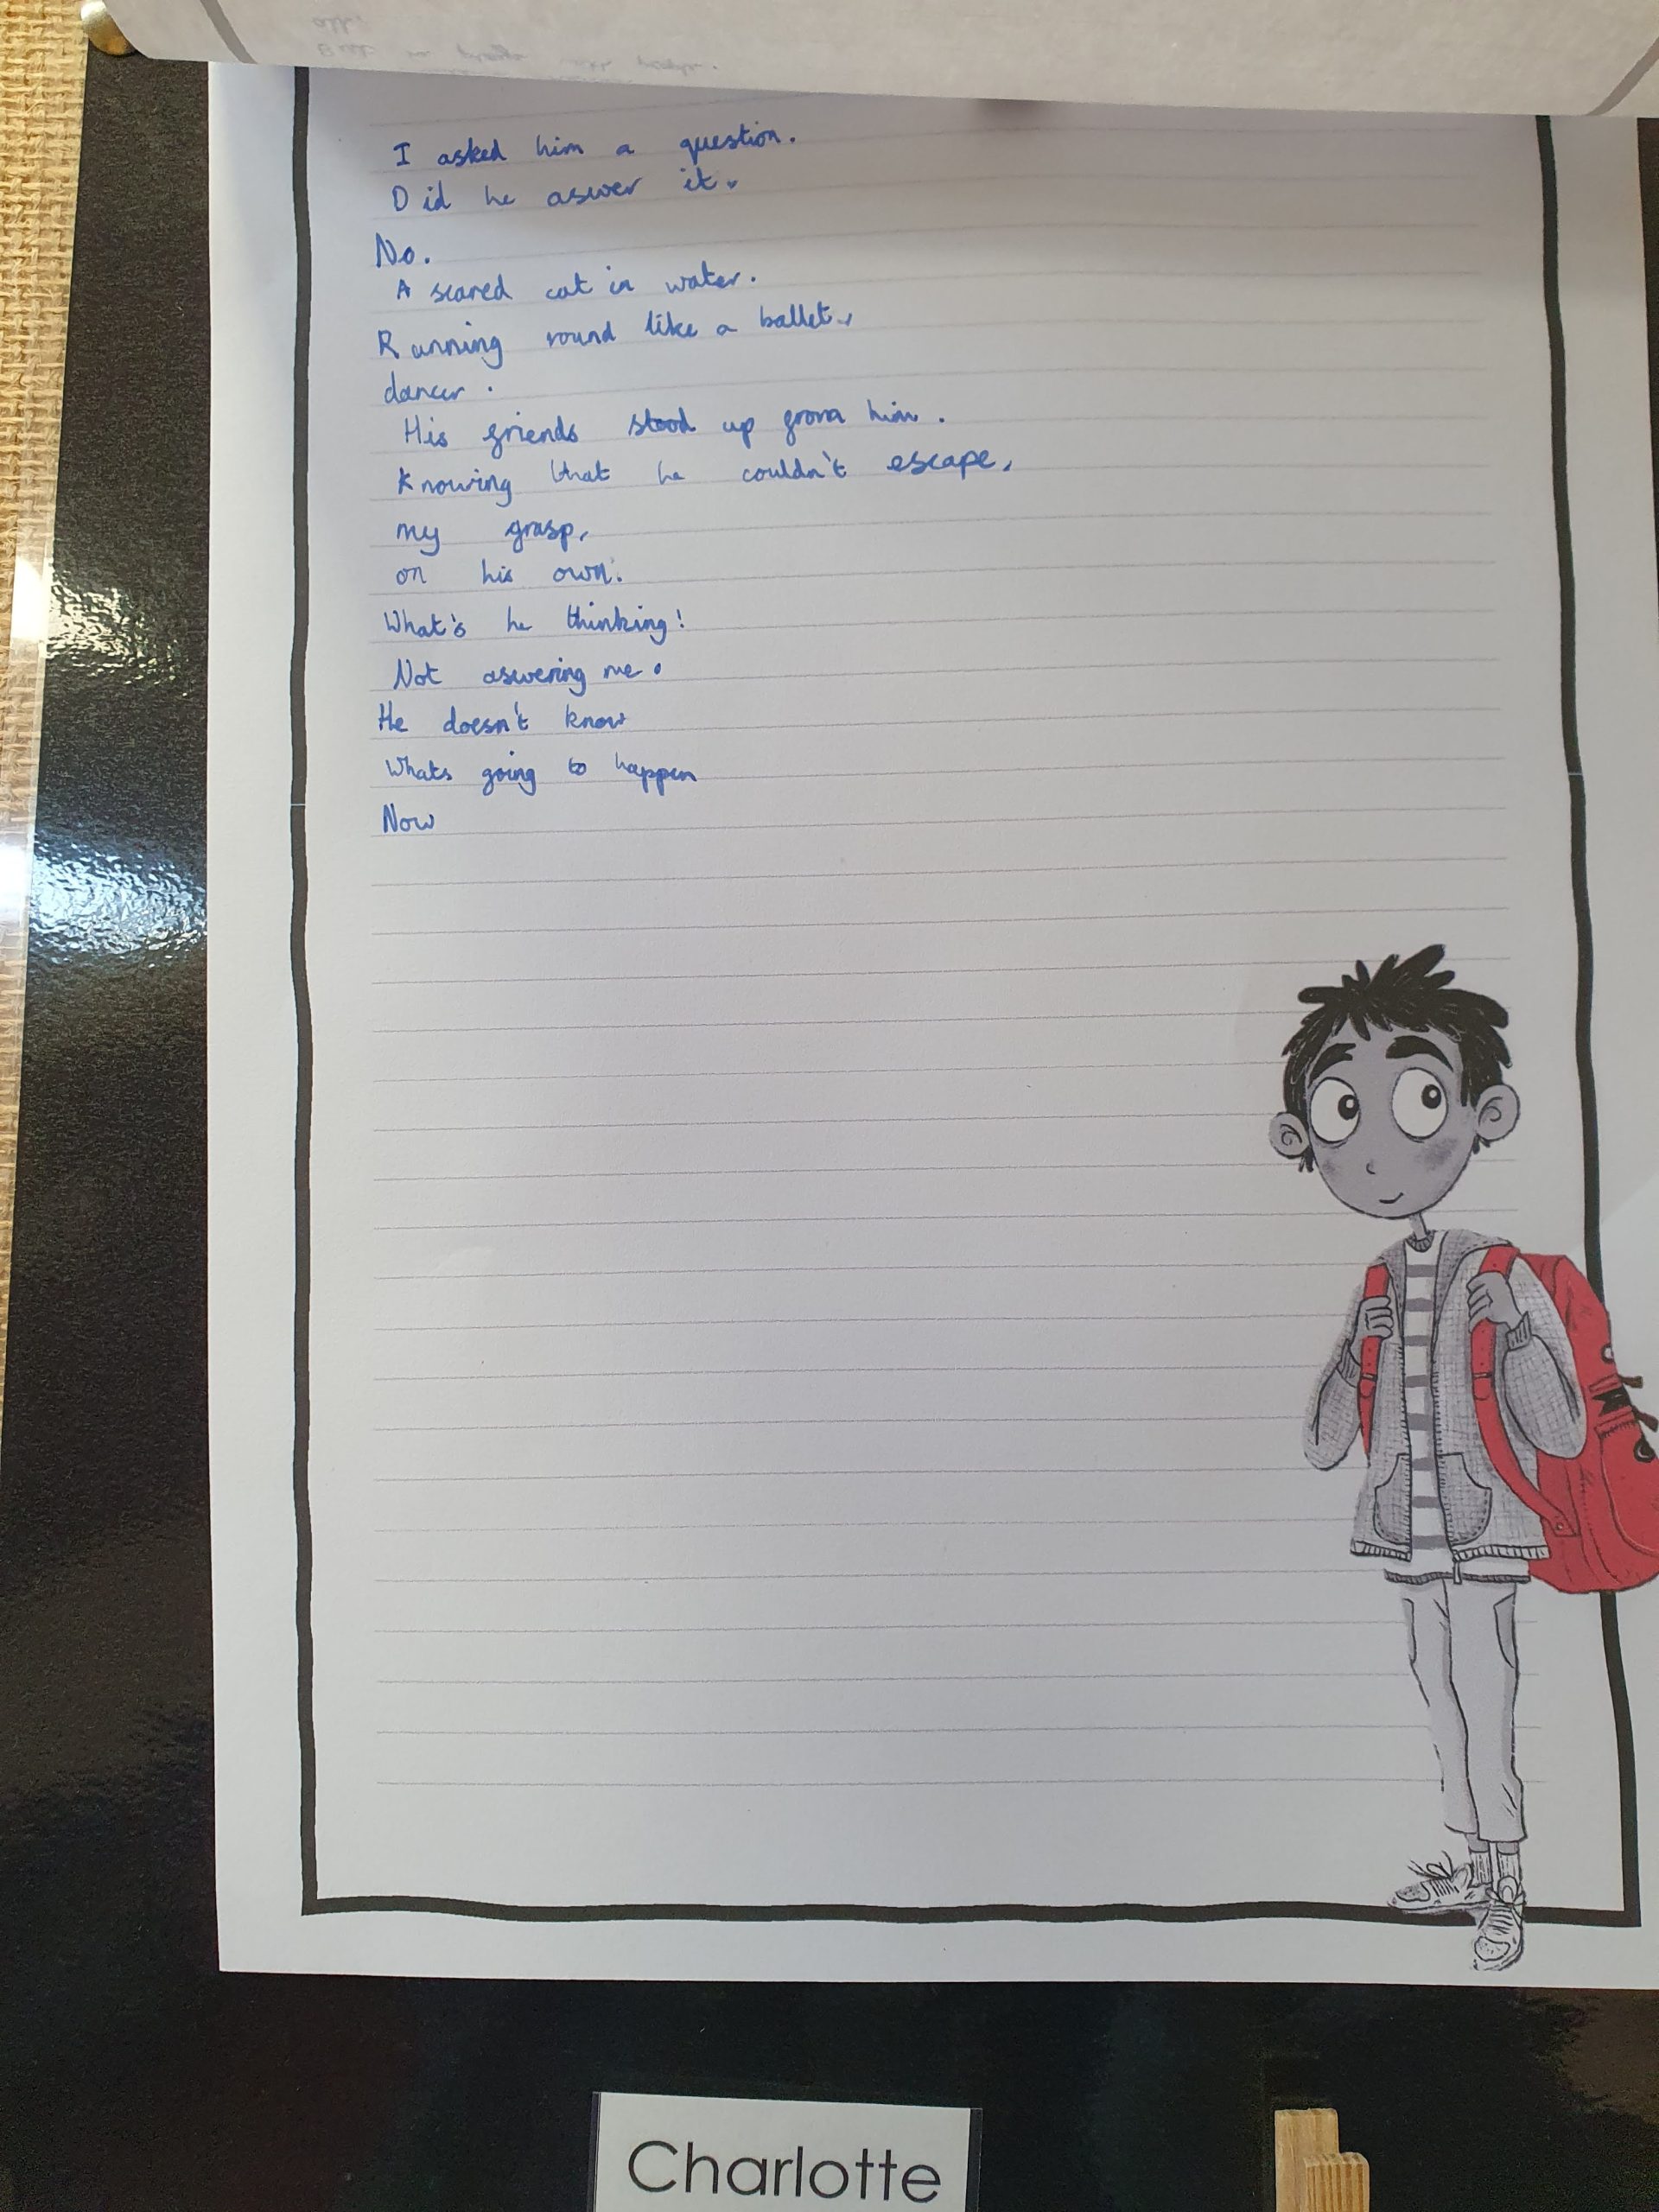 I asked him a question.
Did he aswer it.
No.
A scared cat in water.
Running round like a ballet.,
dancer.
His friends stood up from him.
Knowing that he couldn't escape,
my grasp,
on his own.
What's he thinking!
Not aswering me.
He doesn't know
Whats going to happen
Now
Charlotte